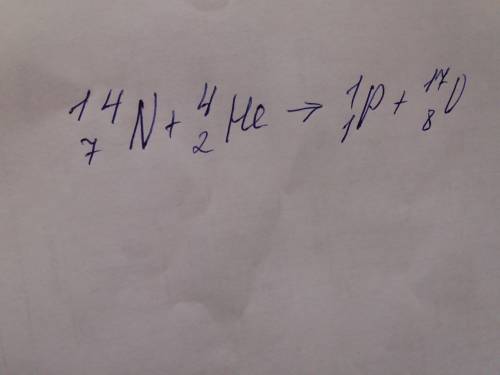 ¹⁴₇N + ⁴₂He → ¹₁p + ¹⁷₈O